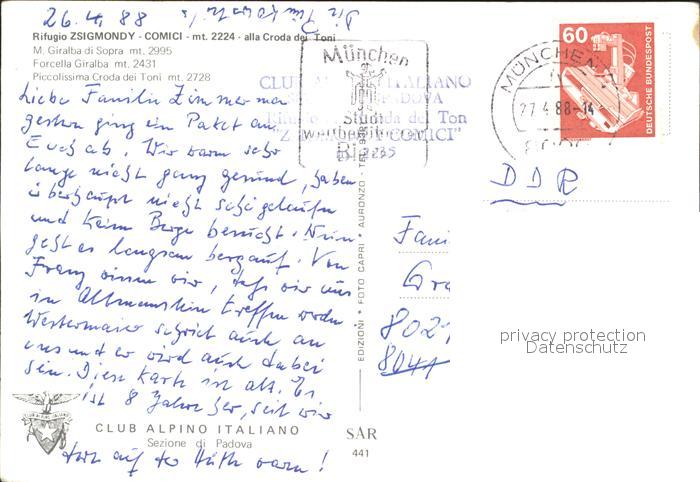 Rifugio ZSIGMONDY - COMICI - mt. 2224 - alla Croda dei Toni
M. Giralba di Sopra mt. 2995
Forcella Giralba mt. 2431
Piccolissima Croda dei Toni mt. 2728
Liebe Familie Zimmerman
gestern ging ein Paket an
Euch ab. Wir waren sehr
lange nicht ganz gesund, haben
überhaupt nicht schigelaufen
und keine Berge besucht. Nun
geht es langsam bergauf. Von
Franz wissen wir, daß wir uns
in Altmannstein treffen werden.
Westermaier schrieb auch an
uns und er wird auch dabei
sein. Diese Karte ist alt. Es
ist 8 Jahre her, seit wir
dort auf der Hütte waren!
Die
26. 4. 88
CLUB ALPINO ITALIANO
Sezione di Padova
EDIZIONI • FOTO CAPRI • AURONZO - TEL.
SAR
441
München
CLUB ALPINO ITALIANO
PADOVA
Rifugio
COMICI"
2235
60
DEUTSCHE BUNDESPOST
MÜNCHEN
27.4.88-14
DDR
Fami
Gra
8021
8044
privacy protection
Datenschutz